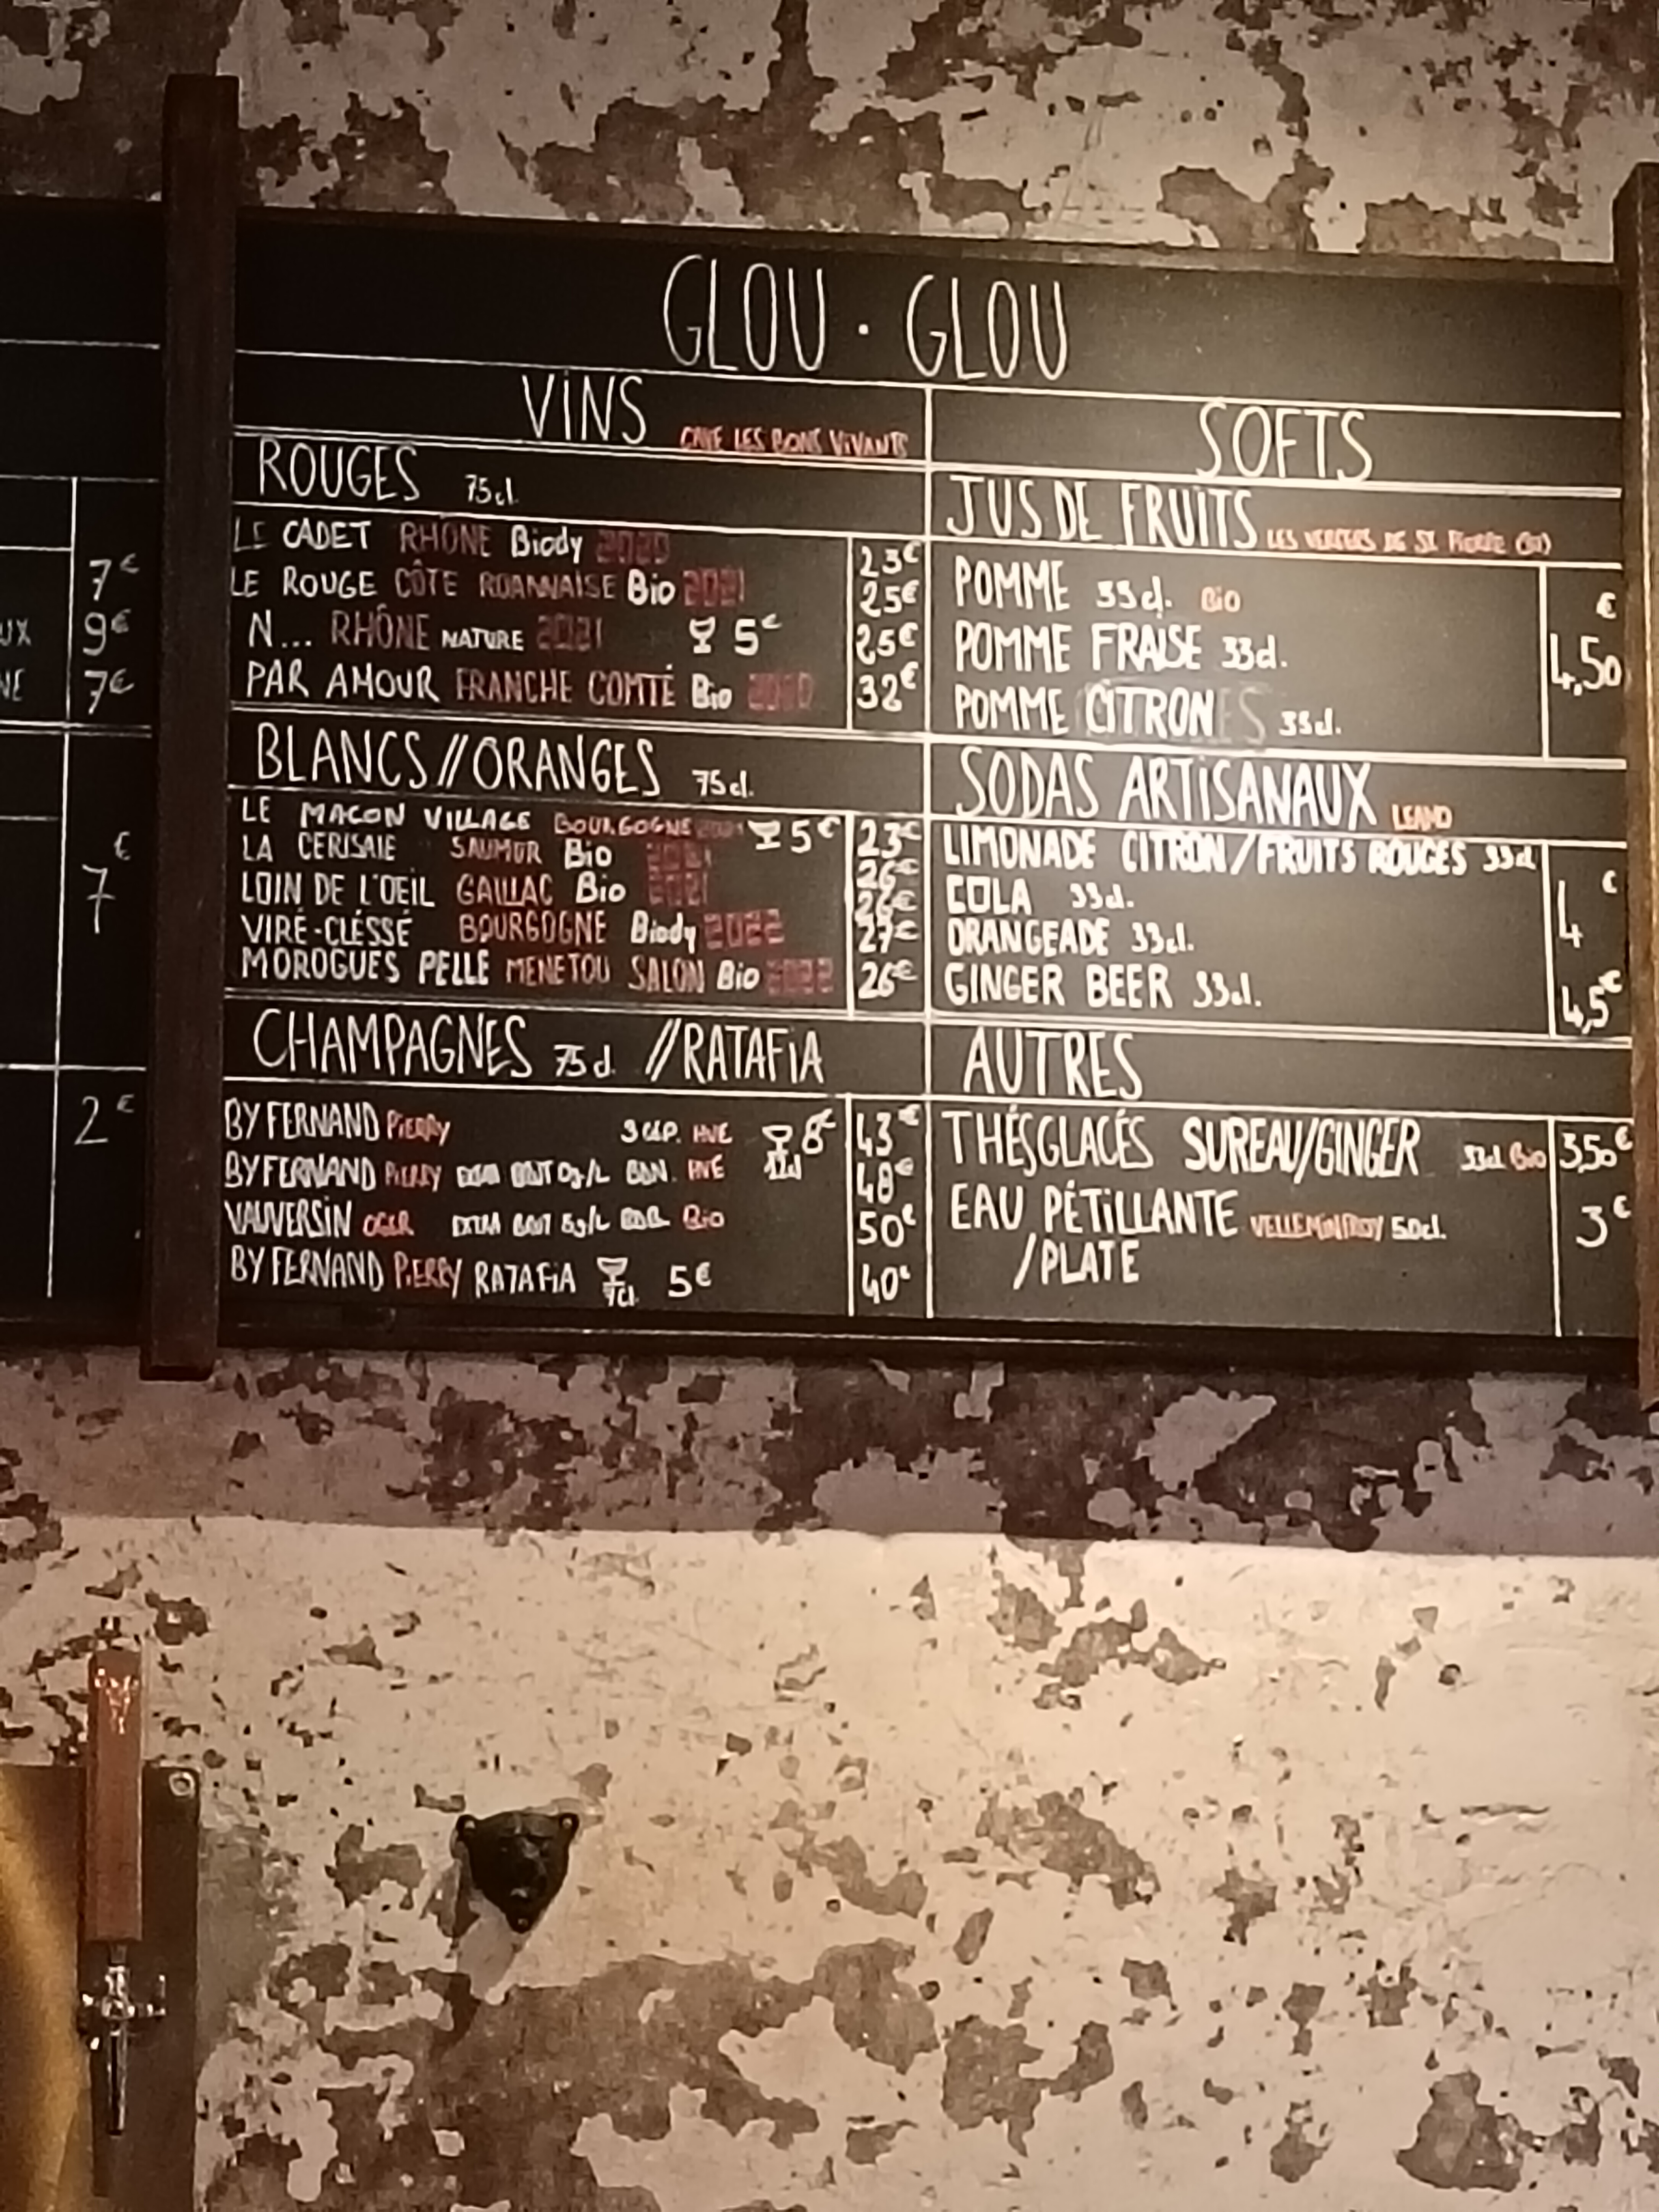 GLOU · GLOU
VINS CAVE LES BONS VIVANTS
ROUGES 75cl.
LE CADET RHÔNE Biody 2020 23€
LE ROUGE CÔTE ROANNAISE Bio 2021 25€
N... RHÔNE NATURE 2021 5€ 25€
PAR AMOUR FRANCHE COMTÉ Bio 32€
BLANCS//ORANGES 75cl.
LE MACON VILLAGE BOURGOGNE 5€ 23€
LA CERISAIE SAUMUR Bio 2021 26€
LOIN DE L'OEIL GAILLAC Bio 2021 26€
VIRÉ-CLÉSSÉ BOURGOGNE Biody 2022 27€
MOROGUES PELLE MENETOU SALON Bio 2022 26€
CHAMPAGNES 75cl. //RATAFIA
BY FERNAND PIERRY 3 CEP. HVE 8€ 43€
12cl
BY FERNAND PIERRY EXTRA BRUT 0g/L BDN. HVE 48€
VAUVERSIN OGER EXTRA BRUT BDB. Bio 50€
BY FERNAND PIERRY RATAFIA 7cl. 5€ 40€
SOFTS
JUS DE FRUITS LES VERGERS DE ST. PIERRE
POMME 33cl. BIO
POMME FRAISE 33cl. 4,50€
POMME CITRON 33cl.
SODAS ARTISANAUX LEAMO
LIMONADE CITRON/FRUITS ROUGES 33cl
COLA 33cl. 4€
ORANGEADE 33cl.
GINGER BEER 33cl. 4,5€
AUTRES
THÉS GLACÉS SUREAU/GINGER 33cl Bio 3,50€
EAU PÉTILLANTE VELLEMINFROY 50cl. 3€
/PLATE
7€
UX 9€
NE 7€
7€
2€